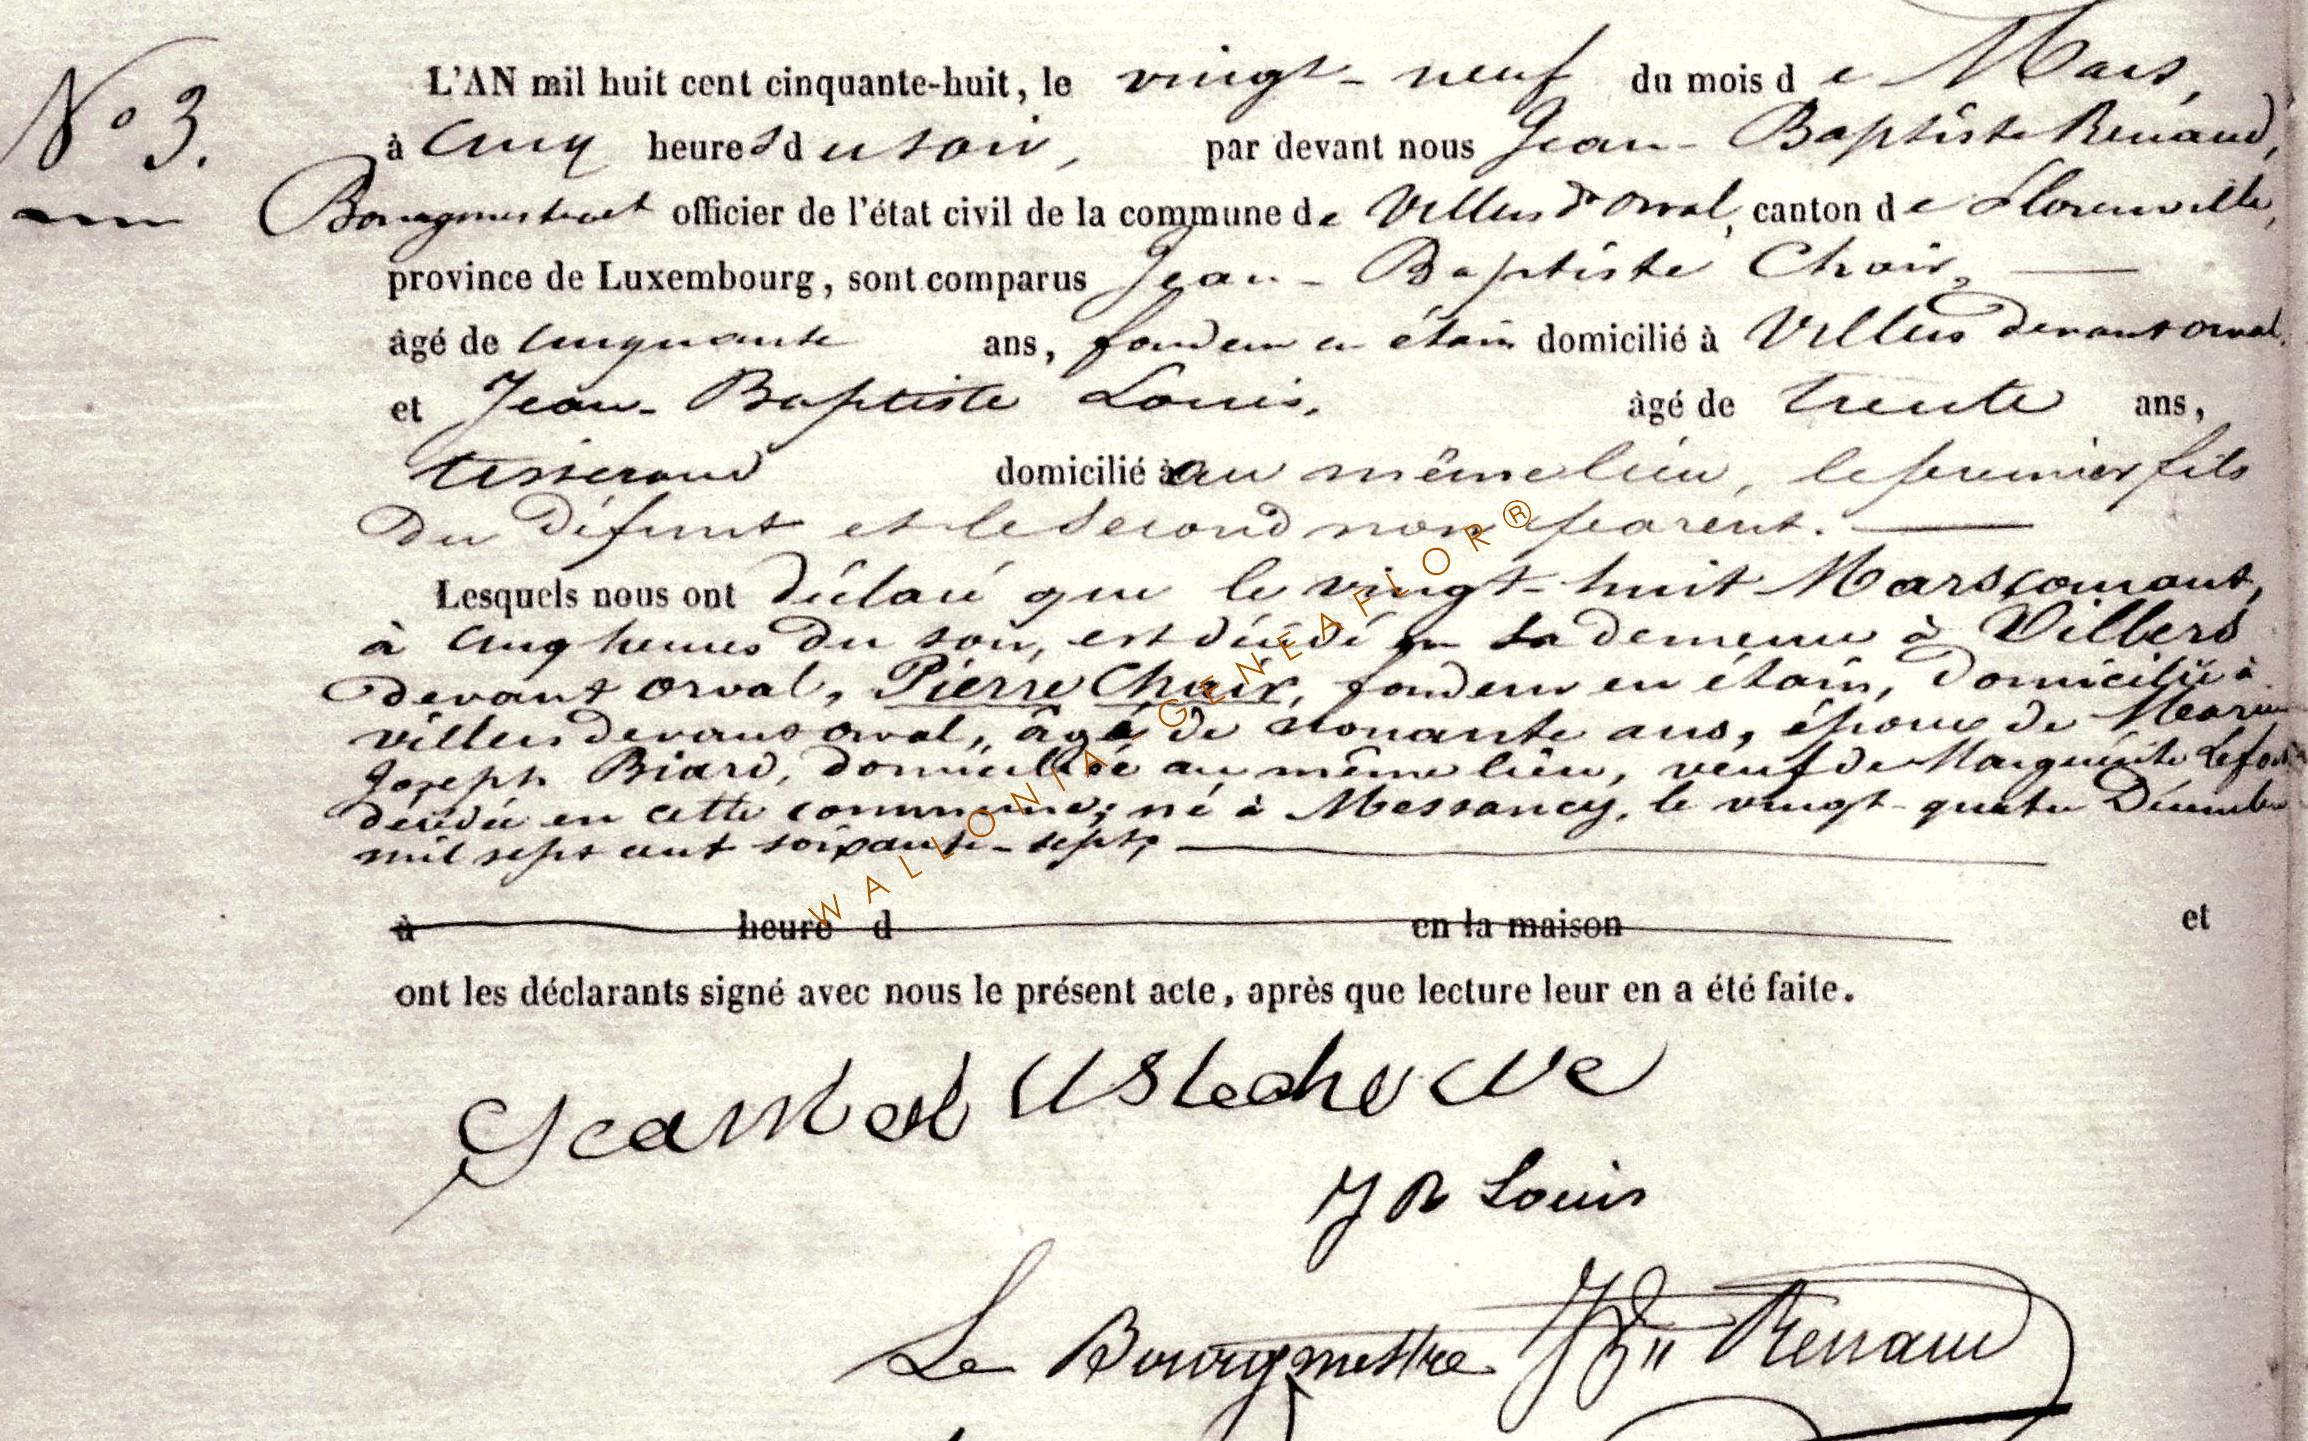 N° 3.
L'AN mil huit cent cinquante-huit, le vingt-neuf du mois de Mars,
à cinq heures du soir, par devant nous Jean-Baptiste Renaud,
Bourgmestre et officier de l'état civil de la commune de Villers dt Orval, canton de Florenville,
province de Luxembourg, sont comparus Jean-Baptiste Choir,
âgé de cinquante ans, fondeur en étain domicilié à Villers devant orval.
et Jean-Baptiste Louis, âgé de trente ans,
tisserand domicilié à au même lieu, le premier fils
du défunt et le second non parent.
Lesquels nous ont déclaré que le vingt-huit Mars courant,
à cinq heures du soir, est décédé en sa demeure à Villers
devant orval, Pierre Choir, fondeur en étain, domicilié à
villers devant orval, âgé de nonante ans, époux de Marie
Joseph Biard, domiciliée au même lieu, veuf de Marguerite
décédée en cette commune; né à Messancy, le vingt-quatre Décembre
mil sept cent soixante-sept,
à heure d en la maison et
ont les déclarants signé avec nous le présent acte, après que lecture leur en a été faite.
J B Louis
Le Bourgmestre JBte Renaud
WALLONIA - GENEAFLOR®